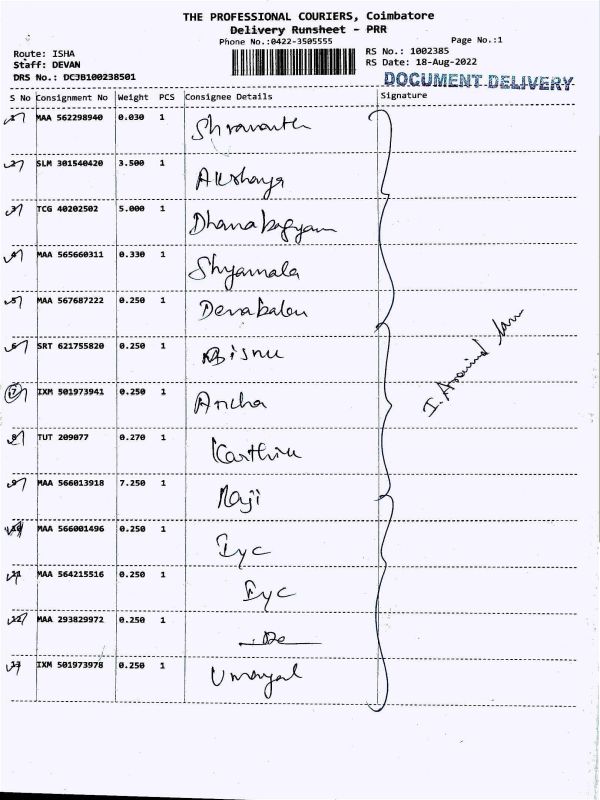 THE PROFESSIONAL COURIERS, Coimbatore
Delivery Runsheet - PRR
Phone No.:0422-3505555
Page No.:1
Route: ISHA
RS No.: 1002385
Staff: DEVAN
RS Date: 18-Aug-2022
DRS No.: DCJB100238501
DOCUMENT DELIVERY
S No Consignment No Weight PCS Consignee Details Signature
1 MAA 562298940 0.030 1 Shravanth
2 SLM 301540420 3.500 1 Akshaya
3 TCG 40202502 5.000 1 Dhanabagyam
4 MAA 565660311 0.330 1 Shyamala
5 MAA 567687222 0.250 1 Devabalan
6 SRT 621755820 0.250 1 Bisnu
7 IXM 501973941 0.250 1 Ancha
8 TUT 209077 0.270 1 Karthik
9 MAA 566013918 7.250 1 Raji
10 MAA 566001496 0.250 1 Iyc
11 MAA 564215516 0.250 1 Iyc
12 MAA 293829972 0.250 1 Do
13 IXM 501973978 0.250 1